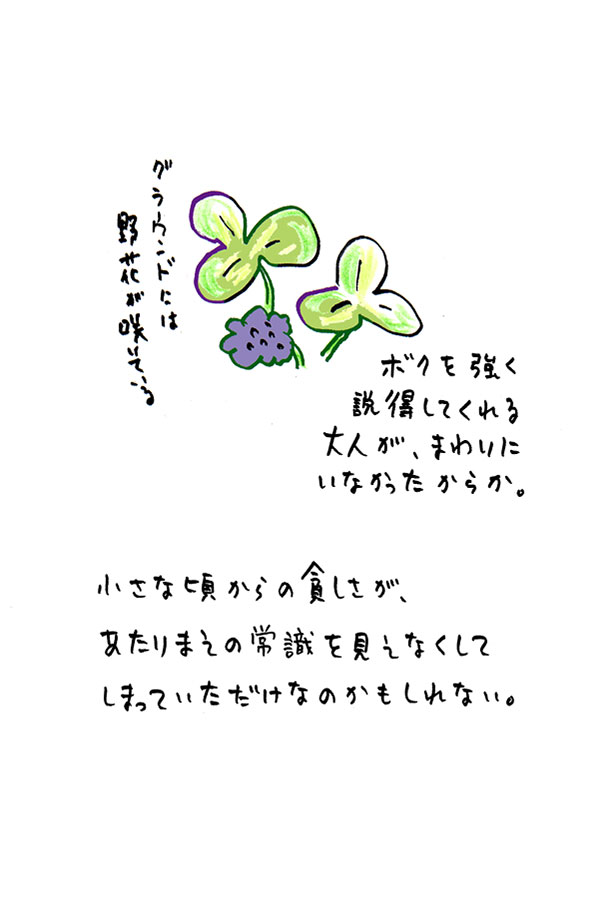 グラウンドには
野花が咲いている
ボクを強く
説得してくれる
大人が、まわりに
いなかったからか。
小さな頃からの貧しさが、
あたりまえの常識を見えなくして
しまっていただけなのかもしれない。